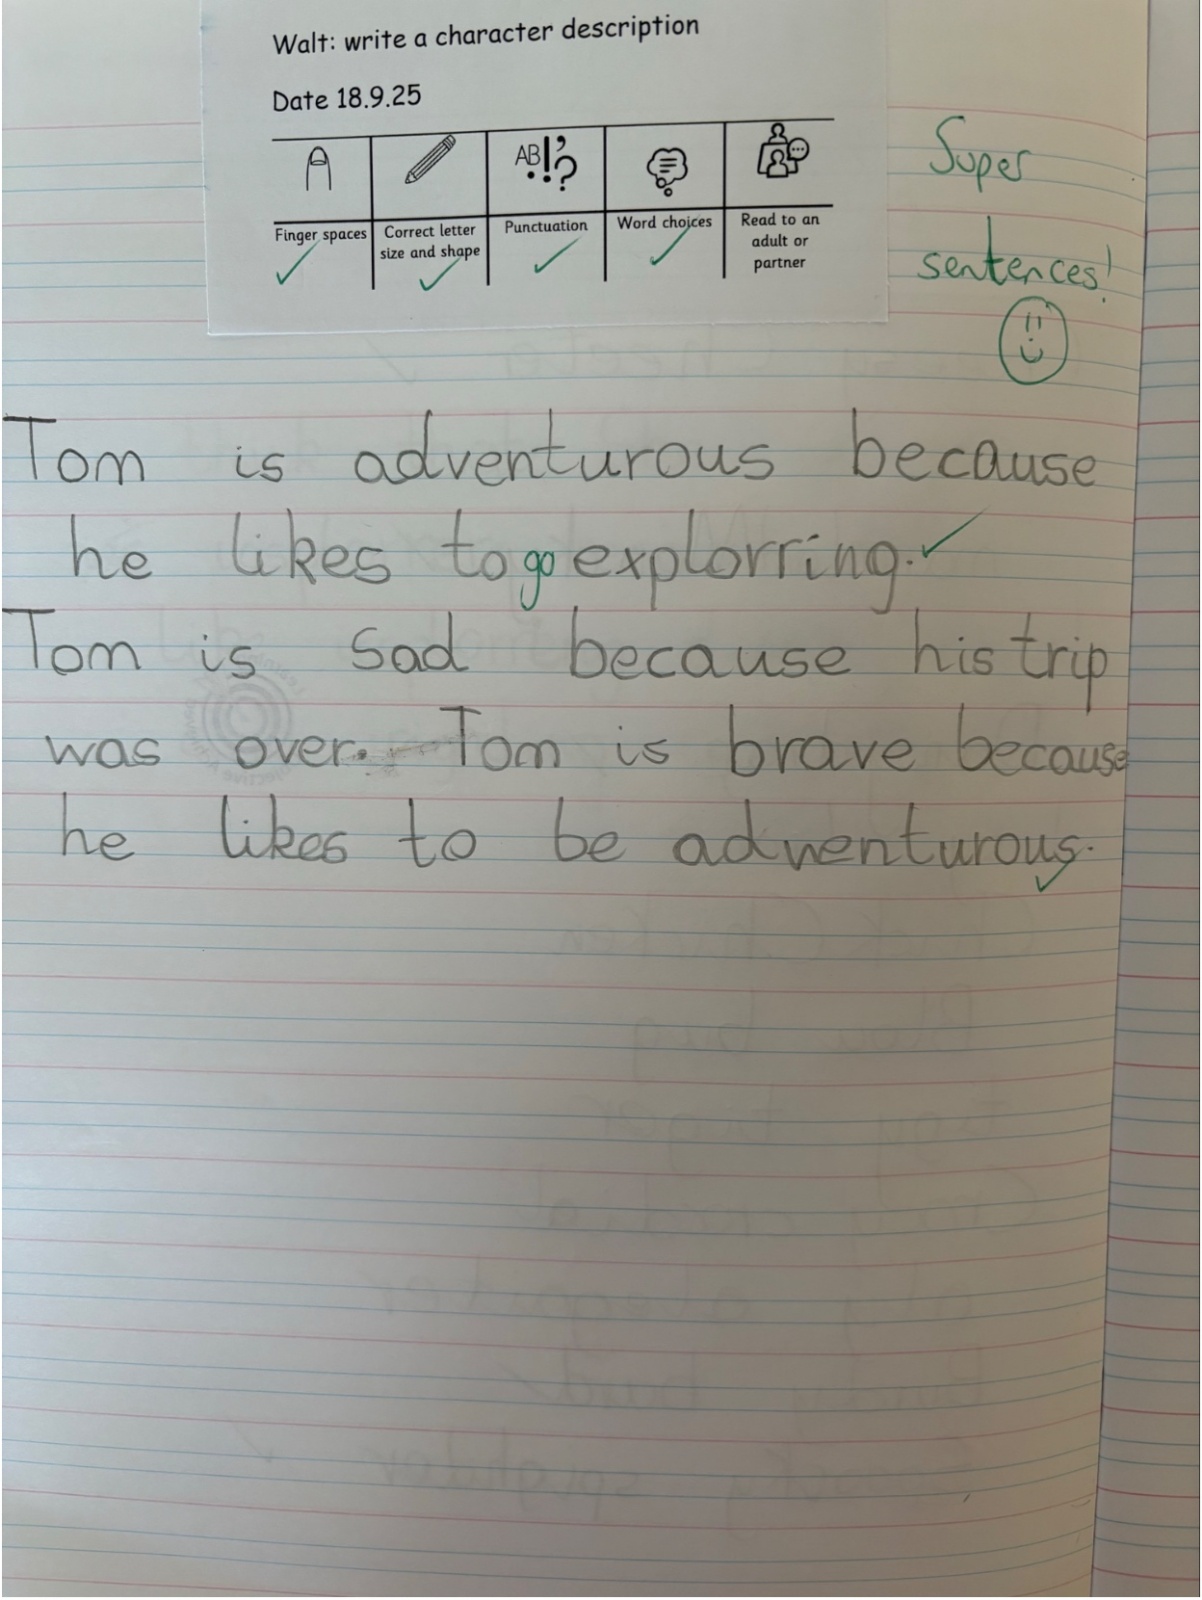 Walt: write a character description
Date 18.9.25
AB!?
Finger spaces
Correct letter
size and shape
Punctuation
Word choices
Read to an
adult or
partner
Super
sentences!
Tom is adventurous because
he likes to go explorring.
Tom is sad because his trip
was over. Tom is brave because
he likes to be adventurous.